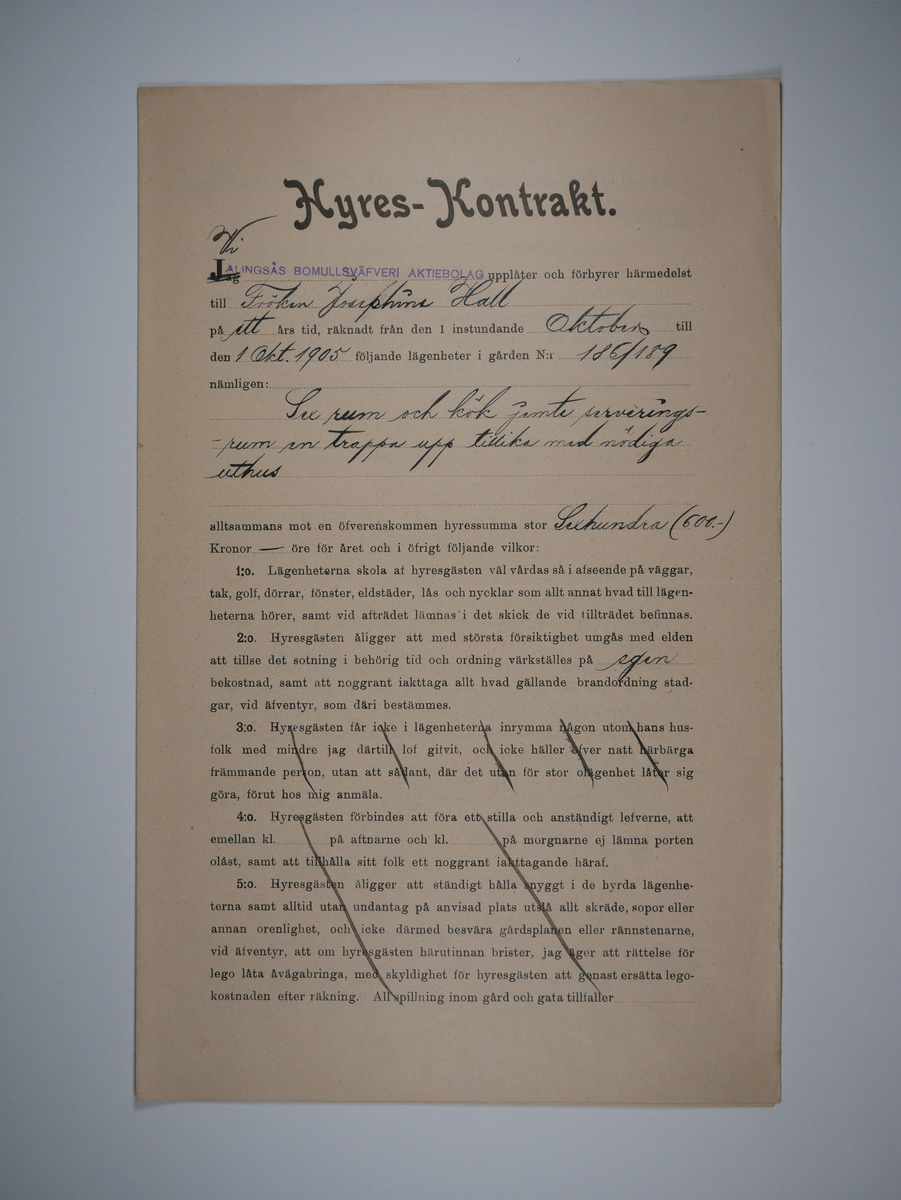 Hyres-Kontrakt.
Vi
Jag ALINGSÅS BOMULLSVÄFVERI AKTIEBOLAG upplåter och förhyrer härmedelst
till Fröken Josephine Hall
på ett års tid, räknadt från den 1 instundande Oktober till
den 1 Okt. 1905 följande lägenheter i gården N:r 186/189
nämligen:
Sex rum och kök jemte serverings-
-rum en trappa upp tillika med nödiga
uthus
alltsammans mot en öfverenskommen hyressumma stor Sexhundra (600.-)
Kronor — öre för året och i öfrigt följande vilkor:
1:o. Lägenheterna skola af hyresgästen väl vårdas så i afseende på väggar,
tak, golf, dörrar, fönster, eldstäder, lås och nycklar som allt annat hvad till lägen-
heterna hörer, samt vid afträdet lämnas i det skick de vid tillträdet befinnas.
2:o. Hyresgästen åligger att med största försiktighet umgås med elden
att tillse det sotning i behörig tid och ordning värkställes på egen
bekostnad, samt att noggrant iakttaga allt hvad gällande brandordning stad-
gar, vid äfventyr, som däri bestämmes.
3:o. Hyresgästen får icke i lägenheterna inrymma någon utom hans hus-
folk med mindre jag därtill lof gifvit, och icke häller öfver natt härbärga
främmande person, utan att sådant, där det utan för stor olägenhet låter sig
göra, förut hos mig anmäla.
4:o. Hyresgästen förbindes att föra ett stilla och anständigt lefverne, att
emellan kl. på aftnarne och kl. på morgnarne ej lämna porten
olåst, samt att tillhålla sitt folk ett noggrant iakttagande häraf.
5:o. Hyresgästen åligger att ständigt hålla snyggt i de hyrda lägenhe-
terna samt alltid utan undantag på anvisad plats utslå allt skräde, sopor eller
annan orenlighet, och icke därmed besvära gårdsplanen eller rännstenarne,
vid äfventyr, att om hyresgästen härutinnan brister, jag äger att rättelse för
lego låta åvägabringa, med skyldighet för hyresgästen att genast ersätta lego-
kostnaden efter räkning. All spillning inom gård och gata tillfaller